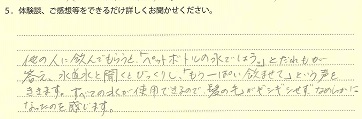 5．体験談、ご感想等をできるだけ詳しくお聞かせください。
他の人に飲んでもらうと、「ペットボトルの水でしょう」とだれもが
答え、水道水と聞くとびっくりし、「もう一ぱい飲ませて」という声を
ききます。すべての水が使用できるので、髪の毛がギシギシせずなめらかに
なったのを感じます。